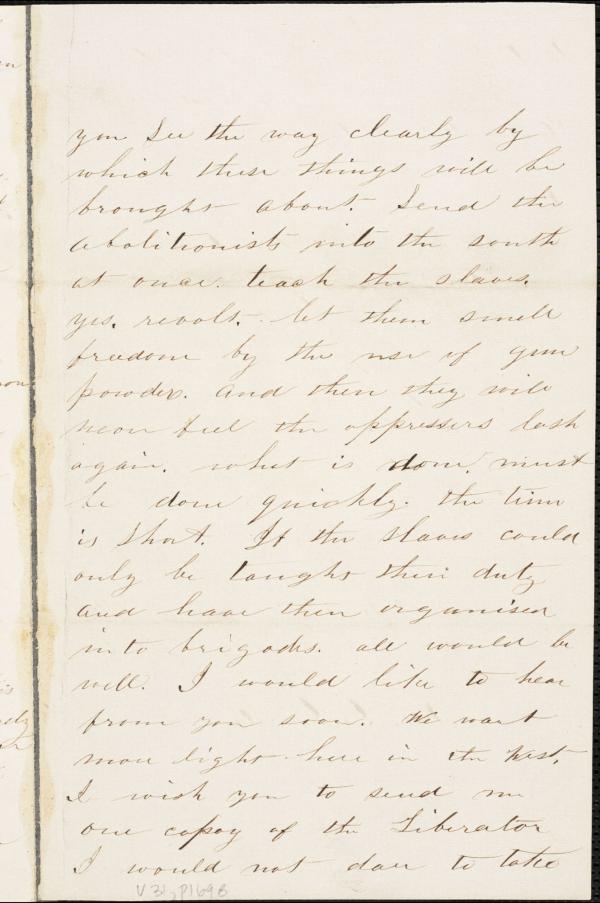 you see the way clearly by
which these things will be
brought about. Send the
abolitionists into the south
at once. teach the slaves.
yes. revolt. let them smell
freedom by the use of gun
powder. and then they will
never feel the oppressers lash
again. what is done. must
be done quickly. the time
is short. If the slaves could
only be taught their duty
and have them organised
into brigades. all would be
well. I would like to hear
from you soon. We want
more light here in the West.
I wish you to send me
one copoy of the Liberator
I would not dare to take
V 31, P169B